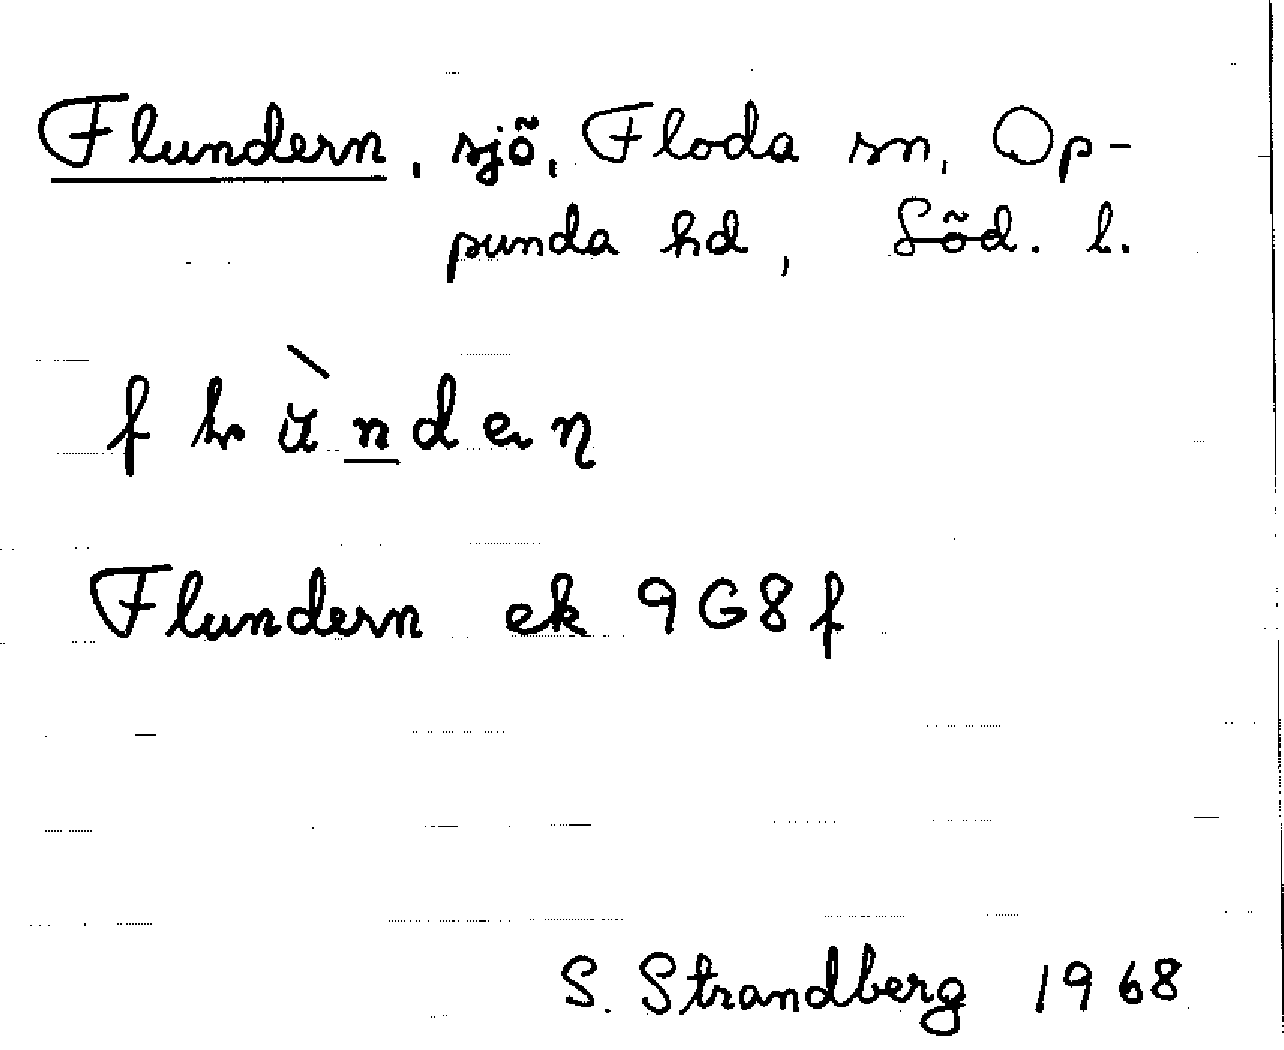 Flundern, sjö, Floda sn, Op-
punda hd, Söd. l.
Flundern ek 9G8f
S. Strandberg 1968